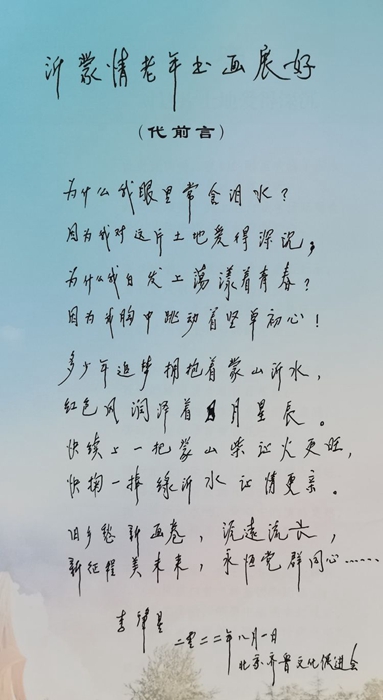 沂蒙情老年书画展好
（代前言）
为什么我眼里常含泪水？
因为我对这片土地爱得深沉，
为什么我白发上荡漾着青春？
因为我胸中跳动着坚单初心！
多少年追梦拥抱着蒙山沂水，
红色风润泽着日月星辰。
快续上一把蒙山柴让火更旺，
快掬一捧绿沂水让情更亲。
旧乡愁新画卷，流远流长，
新征程美未来，永恒党群同心……
李肇星
二零二二年八月一日
北京齐鲁文化促进会